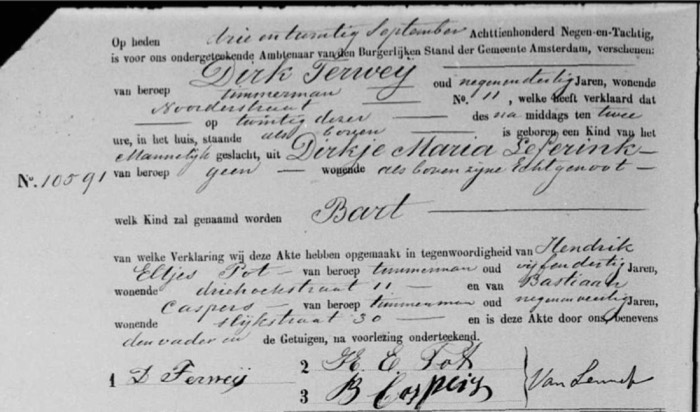 Op heden drie en twintig September Achttienhonderd Negen-en-Tachtig,
is voor ons ondergeteekende Ambtenaar van den Burgerlijken Stand der Gemeente Amsterdam, verschenen:
Dirk Terweij
van beroep timmerman oud negenendertig Jaren, wonende
Noorderstraat No. 11, welke heeft verklaard dat
op twintig dezer des na middags ten twee
ure, in het huis, staande als boven is geboren een Kind van het
Mannelijk geslacht, uit Dirkje Maria
No. 10591 van beroep geen wonende als boven zijne Echtgenoot
welk Kind zal genaamd worden Bart
van welke Verklaring wij deze Akte hebben opgemaakt in tegenwoordigheid van Hendrik
Eltjes Pot van beroep timmerman oud vijfendertig Jaren,
wonende driehoekstraat 11 en van Bastiaan
Caspers van beroep timmerman oud negenenveertig Jaren,
wonende Slijkstraat 30 en is deze Akte door ons, benevens
den vader en de Getuigen, na voorlezing onderteekend.
1 D Terweij 2 H. E. Pot Van Lennep
3 B Caspers